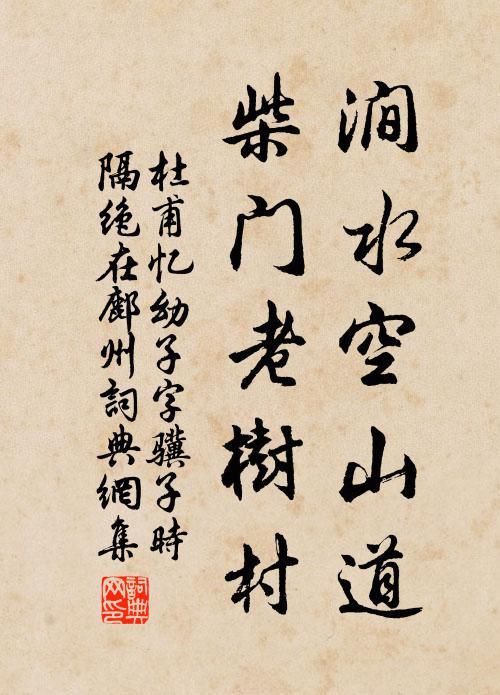 涧水空山道
柴门老樹村
杜甫忆幼子字骥子時
隔绝在鄜州詞典網集
詞典
网印